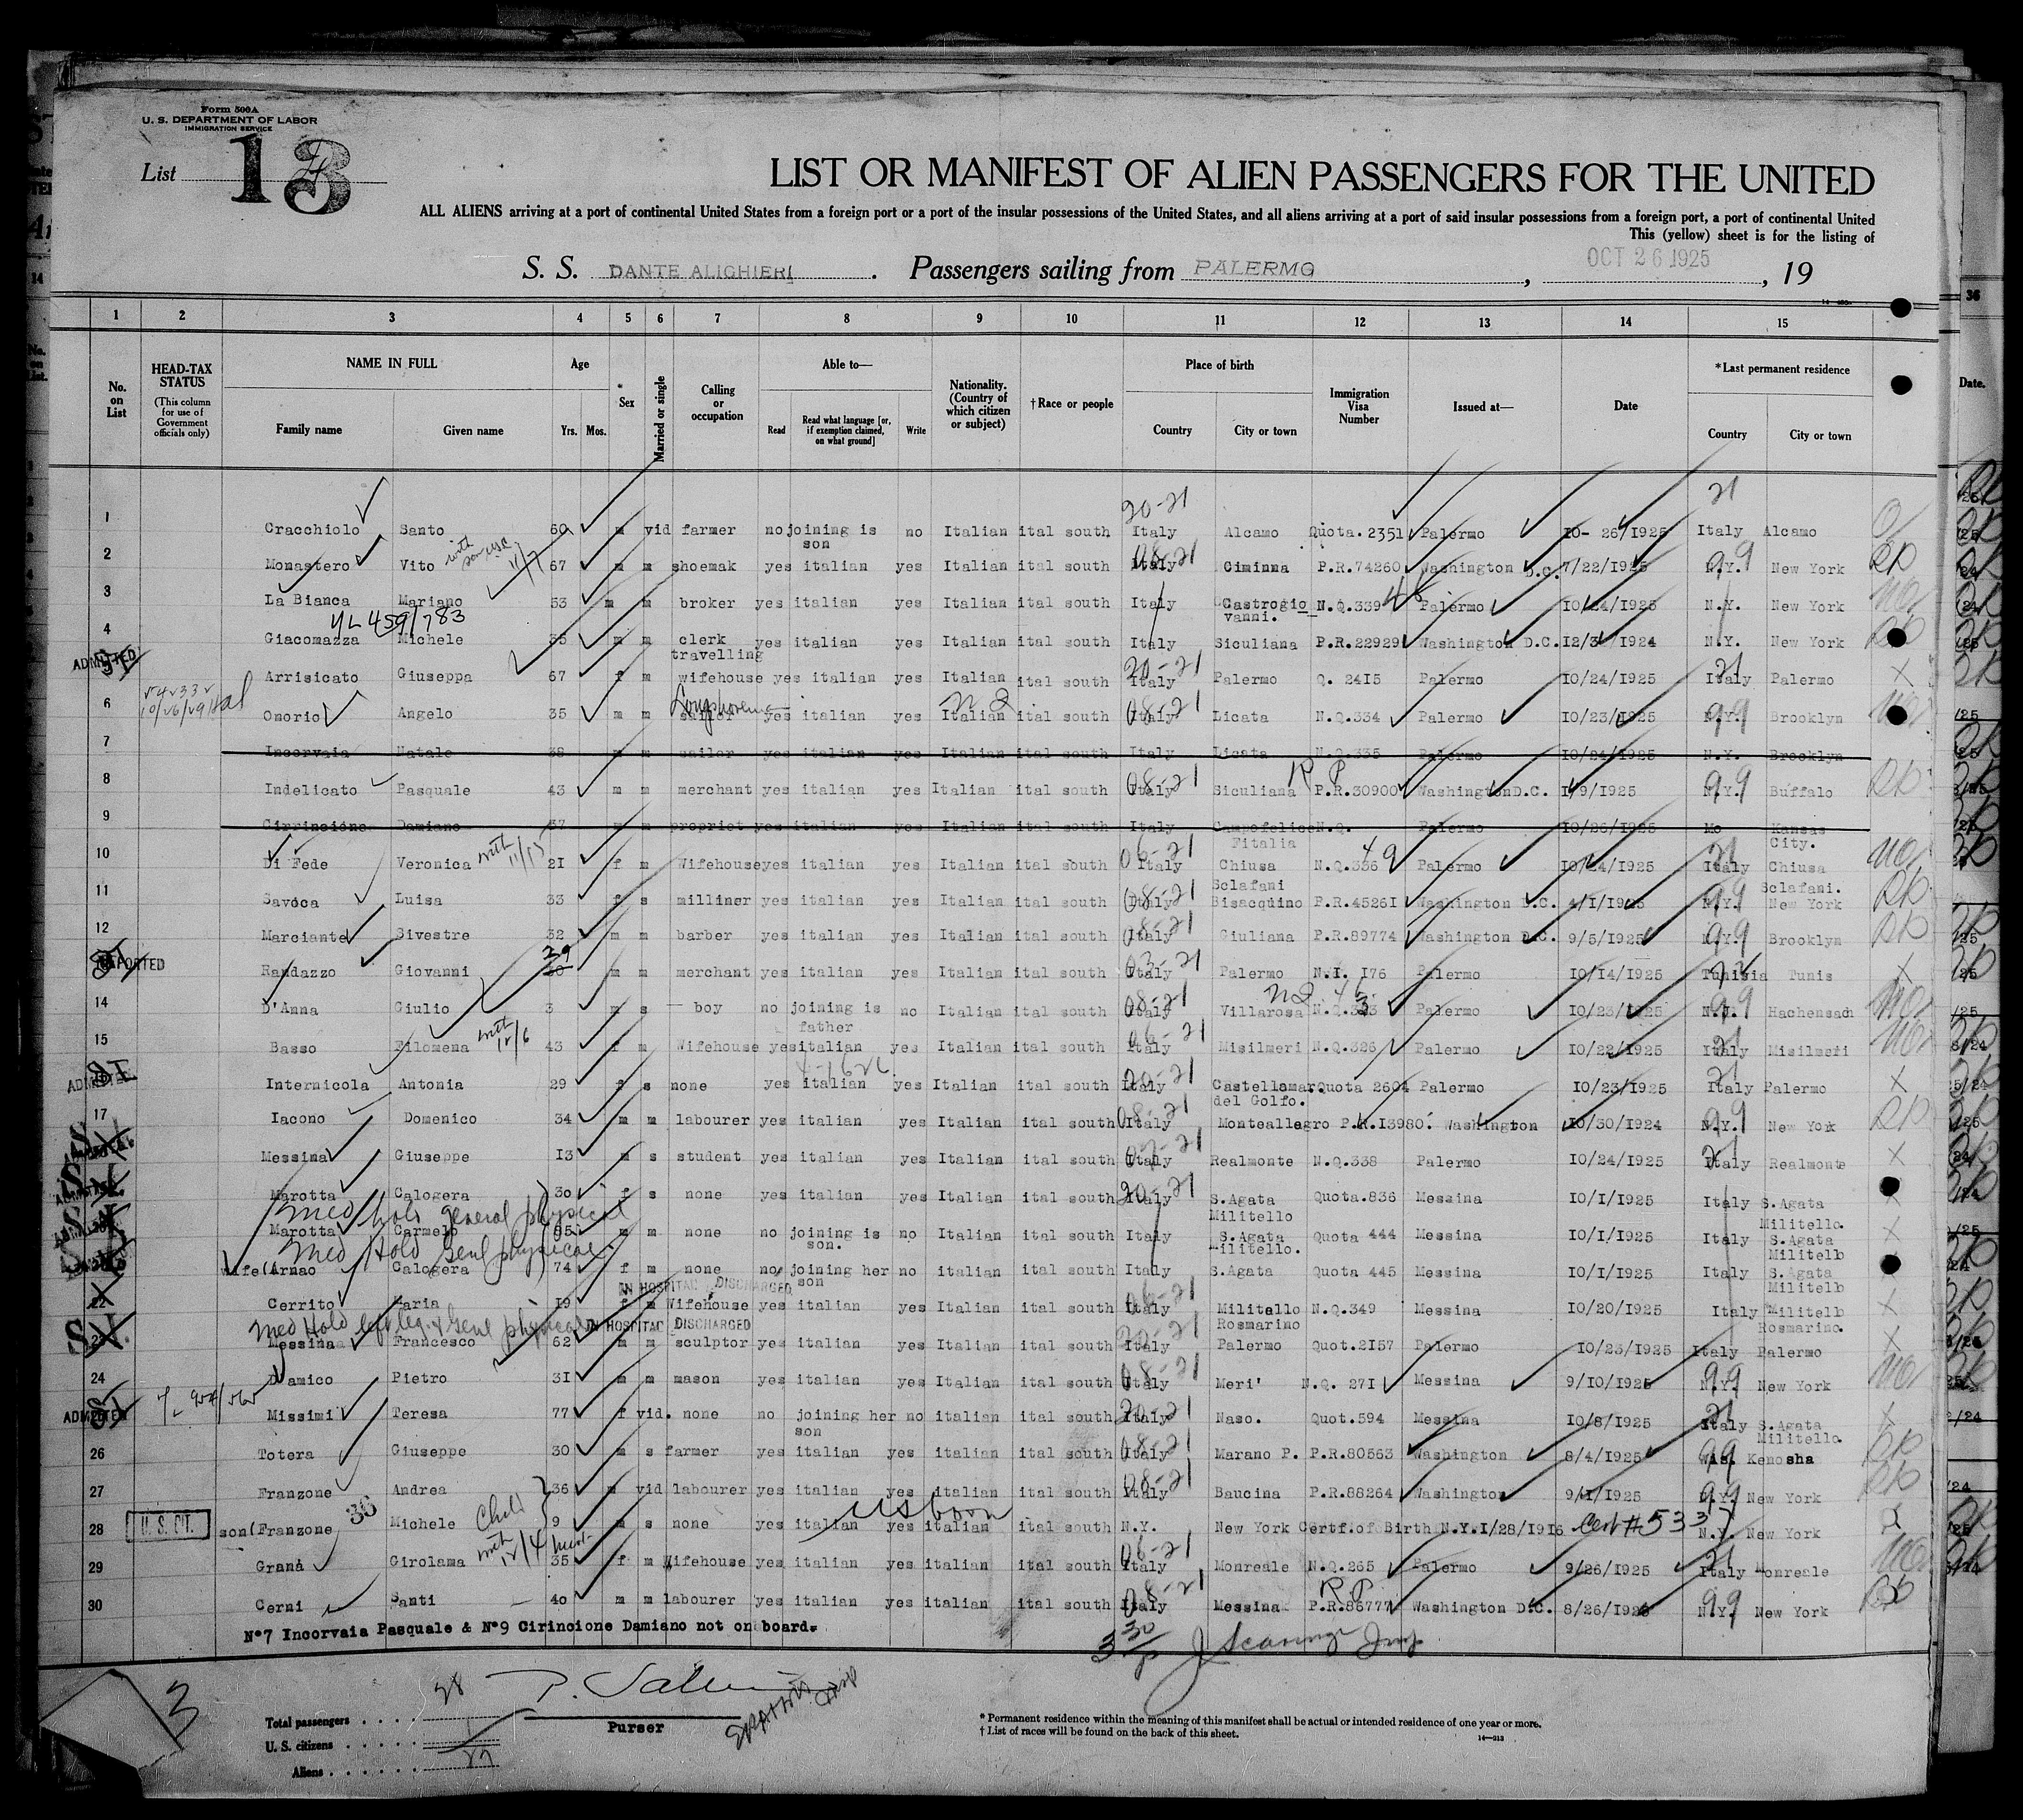 Form 500A
U. S. DEPARTMENT OF LABOR
IMMIGRATION SERVICE
List 13
LIST OR MANIFEST OF ALIEN PASSENGERS FOR THE UNITED
ALL ALIENS arriving at a port of continental United States from a foreign port or a port of the insular possessions of the United States, and all aliens arriving at a port of said insular possessions from a foreign port, a port of continental United
This (yellow) sheet is for the listing of
S. S. DANTE ALIGHIERI. Passengers sailing from PALERMO, OCT 26 1925, 19
1 2 3 4 5 6 7 8 9 10 11 12 13 14 15
No. on List HEAD-TAX STATUS (This column for use of Government officials only) NAME IN FULL Family name Given name Age Yrs. Mos. * Sex Married or single Calling or occupation Able to— Read Read what language [or, if exemption claimed, on what ground] Write Nationality. (Country of which citizen or subject) † Race or people Place of birth Country City or town Immigration Visa Number Issued at— Date *Last permanent residence Country City or town
20-21 21
1 Cracchiolo Santo 60 m vid farmer no joining is son no Italian ital south Italy Alcamo Quota.2351 Palermo 10-26/1925 Italy Alcamo
2 Monastero Vito with son 11/7 67 m m shoemak yes italian yes Italian ital south Italy Ciminna P.R.74260 Washington D.C. 7/22/1925 N.Y. 99 New York
3 La Bianca Mariano 53 m m broker yes italian yes Italian ital south Italy Castrogiovanni. N.Q.339 Palermo 10/24/1925 N.Y. New York
4 Giacomazza Michele 35 m m clerk travelling yes italian yes Italian ital south Italy Siculiana P.R.22929 Washington D.C. 12/3/1924 N.Y. New York
ADMITTED Arrisicato Giuseppa 67 f m wifehouse yes italian yes Italian ital south Italy 20-21 Palermo Q. 2415 Palermo 10/24/1925 Italy 21 Palermo
6 Onorio Angelo 35 m m yes italian yes Italian ital south Italy 08-21 Licata N.Q.334 Palermo 10/23/1925 N.Y. 99 Brooklyn
7 Incorvaia Natale 38 m m sailor yes italian yes Italian ital south Italy Licata N.Q.335 Palermo 10/24/1925 N.Y. Brooklyn
8 Indelicato Pasquale 43 m m merchant yes italian yes Italian ital south Italy 08-21 Siculiana P.R.30900 Washington D.C. 1/9/1925 N.Y. 99 Buffalo
9 Cirrincione Damiano 37 m m propriet yes italian yes Italian ital south Italy Campofelice Fitalia N.Q. Palermo 10/26/1925 Mo Kansas City.
10 Di Fede Veronica with 11/15 21 f m Wifehouse yes italian yes Italian ital south Italy 06-21 Chiusa Sclafani N.Q.336 49 Palermo 10/24/1925 Italy 21 Chiusa Sclafani.
11 Savoca Luisa 33 f s milliner yes italian yes Italian ital south Italy 08-21 Bisacquino P.R.45261 Washington D.C. 4/1/1925 N.Y. 99 New York
12 Marciante Sivestre 32 m m barber yes italian yes Italian ital south Italy 08-21 Giuliana P.R.89774 Washington D.C. 9/5/1925 N.Y. 99 Brooklyn
Randazzo Giovanni 29 m m merchant yes italian yes Italian ital south Italy 03-21 Palermo N.I. 176 Palermo 10/14/1925 Tunisia Tunis
14 D'Anna Giulio 3 m s boy no joining is father no Italian ital south Italy 08-21 Villarosa Palermo 10/23/1925 N.J. 99 Hachensach
15 Basso Filomena with 12/6 43 f m Wifehouse yes italian yes Italian ital south Italy 06-21 Misilmeri N.Q.326 Palermo 10/22/1925 Italy 21 Misilmeri
ADMITTED Internicola Antonia 29 f s none yes italian yes Italian ital south Italy 20-21 Castellamar. del Golfo. Quota 2604 Palermo 10/23/1925 Italy 21 Palermo
17 Iacono Domenico 34 m m labourer yes italian yes Italian ital south Italy 08-21 Monteallegro P.R.13980. Washington 10/30/1924 N.Y. 99 New York
Messina Giuseppe 13 m s student yes italian yes Italian ital south Italy Realmonte N.Q.338 Palermo 10/24/1925 Italy 21 Realmonte
Marotta Calogera 30 f s none yes italian yes Italian ital south Italy 20-21 S.Agata Militello Quota.836 Messina 10/1/1925 Italy S.Agata Militello.
Med hold general physical
Marotta Carmelo m m none no joining is son. no Italian ital south Italy S.Agata Militello. Quota 444 Messina 10/1/1925 Italy S.Agata Militello
Med Hold Genl physical
wife( Arnao Calogera 74 f m none no joining her son no italian ital south Italy S.Agata Quota 445 Messina 10/1/1925 Italy S.Agata Militello
IN HOSPITAL DISCHARGED
22 Cerrito Maria 19 f m Wifehouse yes italian yes Italian ital south Italy 06-21 Militello Rosmarino N.Q.349 Messina 10/20/1925 Italy Militello Rosmarino.
Med Hold left leg & Genl physical IN HOSPITAL DISCHARGED
23 Messina Francesco 62 m m sculptor yes italian yes Italian ital south Italy 20-21 Palermo Quot.2157 Palermo 10/23/1925 Italy Palermo
24 D'amico Pietro 31 m m mason yes italian yes Italian ital south Italy 08-21 Meri' N.Q. 271 Messina 9/10/1925 N.Y. 99 New York
ADMITTED Missimi Teresa 77 f vid. none no joining her son no italian ital south Italy 20-21 Naso. Quot.594 Messina 10/8/1925 Italy 21 S.Agata Militello.
26 Totera Giuseppe 30 m s farmer yes italian yes italian ital south Italy 08-21 Marano P. P.R.80563 Washington 8/4/1925 Wis. 99 Kenosha
27 Franzone Andrea 36 m vid labourer yes italian yes italian ital south Italy 08-21 Baucina P.R.88264 Washington 9/1/1925 N.Y. 99 New York
28 U. S. CIT. son( Franzone 36 Michele Child 9 m s none yes italian yes US born italian ital south N.Y. New York Certf.of Birth N.Y.1/28/1916 Cert # 533 N.Y. New York
29 Graná Girolama with 12/4 35 f m Wifehouse yes italian yes italian ital south Italy 06-21 Monreale N.Q.265 Palermo 9/26/1925 Italy 21 Monreale
30 Cerni Santi 40 m m labourer yes italian yes italian ital south Italy 08-21 Messina P.R.86777 Washington D.C. 8/26/1925 N.Y. 99 New York
N°7 Incorvaia Pasquale & N°9 Cirincione Damiano not on board.
Total passengers 28
U. S. citizens 1
Aliens 27
Purser
* Permanent residence within the meaning of this manifest shall be actual or intended residence of one year or more.
† List of races will be found on the back of this sheet.
14—213